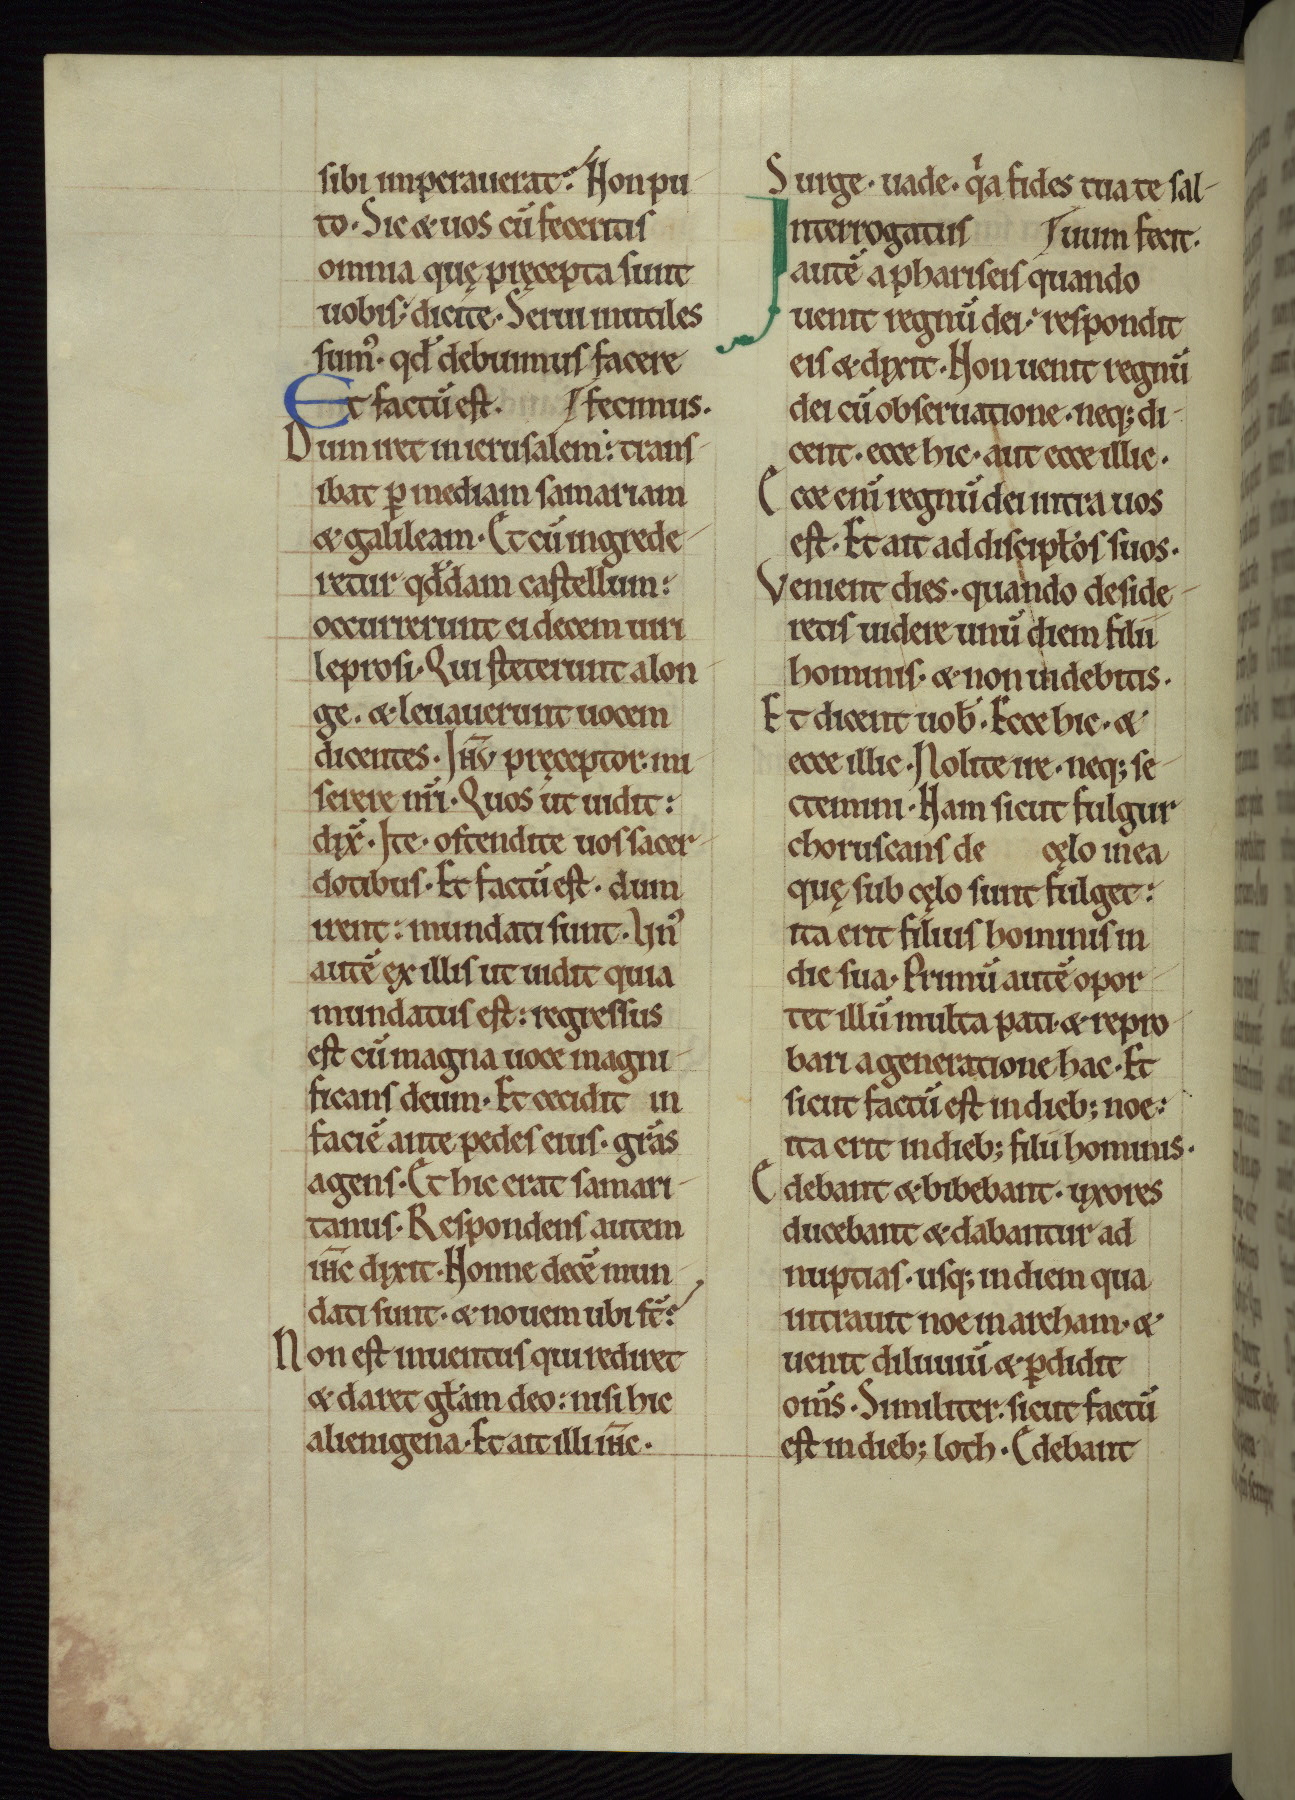 sibi imperauerat? Non pu-
to. Sic & uos cū feceritis
omnia quę pręcepta sunt
uobis: dicite. Serui inutiles
sumꝰ. qđ debuimus facere
Et factū est. fecimus.
Dum iret in ierusalem: trans-
ibat ꝑ mediam samariam
& galileam. Et cū ingrede-
retur qđdam castellum:
occurrerunt ei decem uiri
leprosi. Qui steterunt a lon-
ge. & leuauerunt uocem
dicentes. Ihū pręceptor: mi-
serere nr̄i. Quos ut uidit:
dix̄. Ite. ostendite uos sacer-
dotibus. Et factū est. dum
irent: mundati sunt. Unꝰ
autē ex illis ut uidit quia
mundatus est: regressus
est cū magna uoce magni-
ficans deum. Et cecidit in
faciē ante pedes eius. gr̄as
agens. Et hic erat samari-
tanus. Respondens autem
ihc̄ dixit. Nonne decē mun-
dati sunt. & nouem ubi st̄?
Non est inuentus qui rediret
& daret gł̄am deo: nisi hic
alienigena. Et ait illi ihc̄.
Surge. uade. qͥa fides tua te sal-
Interrogatus uum fecit.
autē a phariseis quando
uenit regnū dei: respondit
eis & dixit. Non uenit regnū
dei cū obseruatione. neq; di-
cent. ecce hic. aut ecce illic.
Ecce enī regnū dei intra uos
est. Et ait ad discipłos suos.
Venient dies. quando deside-
retis uidere unū diem filii
hominis. & non uidebitis.
Et dicent uob̄. Ecce hic. &
ecce illic. Nolite ire. neq; se-
ctemini. Nam sicut fulgur
choruscans de cęlo in ea
quę sub cęlo sunt fulget:
ita erit filius hominis in
die sua. Primū autē opor-
tet illū multa pati. & repro-
bari a generatione hac. Et
sicut factū est in dieb; noe:
ita erit in dieb; filii hominis.
Edebant & bibebant. uxores
ducebant & dabantur ad
nuptias. usq; in diem qua
intrauit noe in archam. &
uenit diluuiū & ꝑdidit
om̄s. Similiter. sicut factū
est in dieb; loth. Edebant